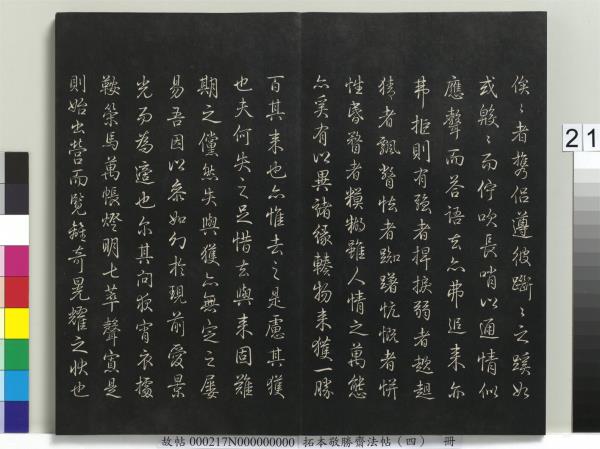 俟〻者携侣遵彼蹰〻之蹊如
或毅〻而佇吹長哨以通情似
應聲而答語去亦弗追来亦
弗拒則有強者捍捩弱者趑趄
猜者飄瞥怯者踟躇忼慨者
性蒙瞀者獷雖人情之萬態
亦奚有以異諸緣轃物来獲一勝
百其来也亦惟去之是慮其獲
也夫何失之足惜去與来固難
期之儻然失與獲亦無定之屢
易吾因以參如幻於現前愛景
光而為邅也尔其问夜宵衣據
鞍策馬萬帳燈明七萃聲寅是
則始出營而覧奇晃耀之快也
故帖 000217N000000000 拓本敬勝齋法帖（四） 冊
21